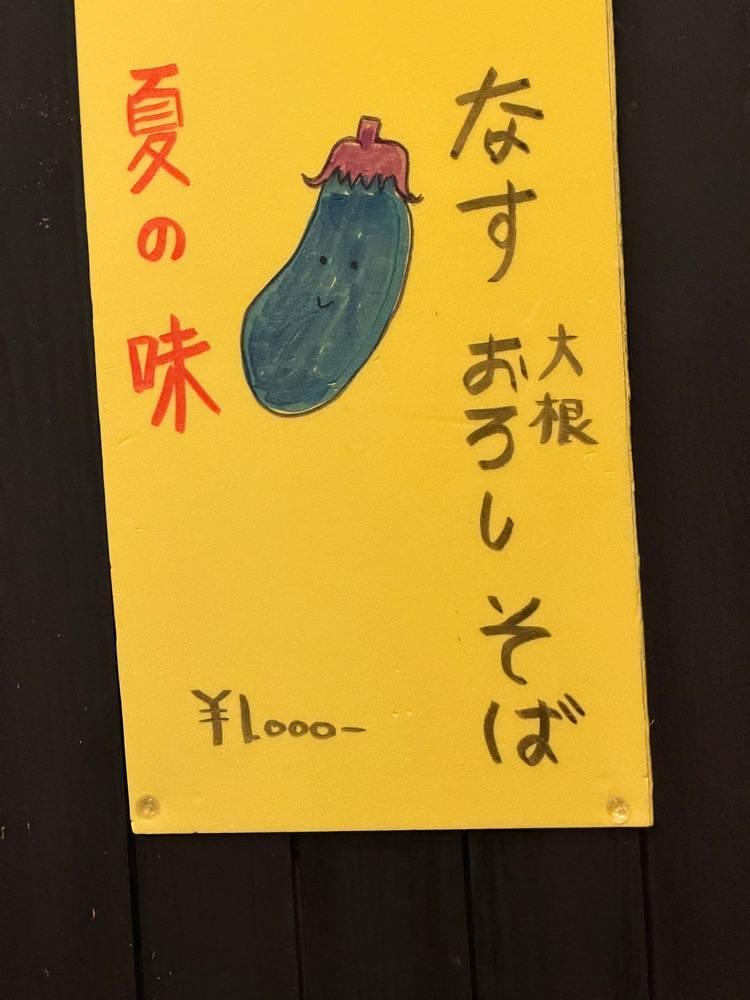 なす
大根
おろし
そば
夏の味
¥1000-